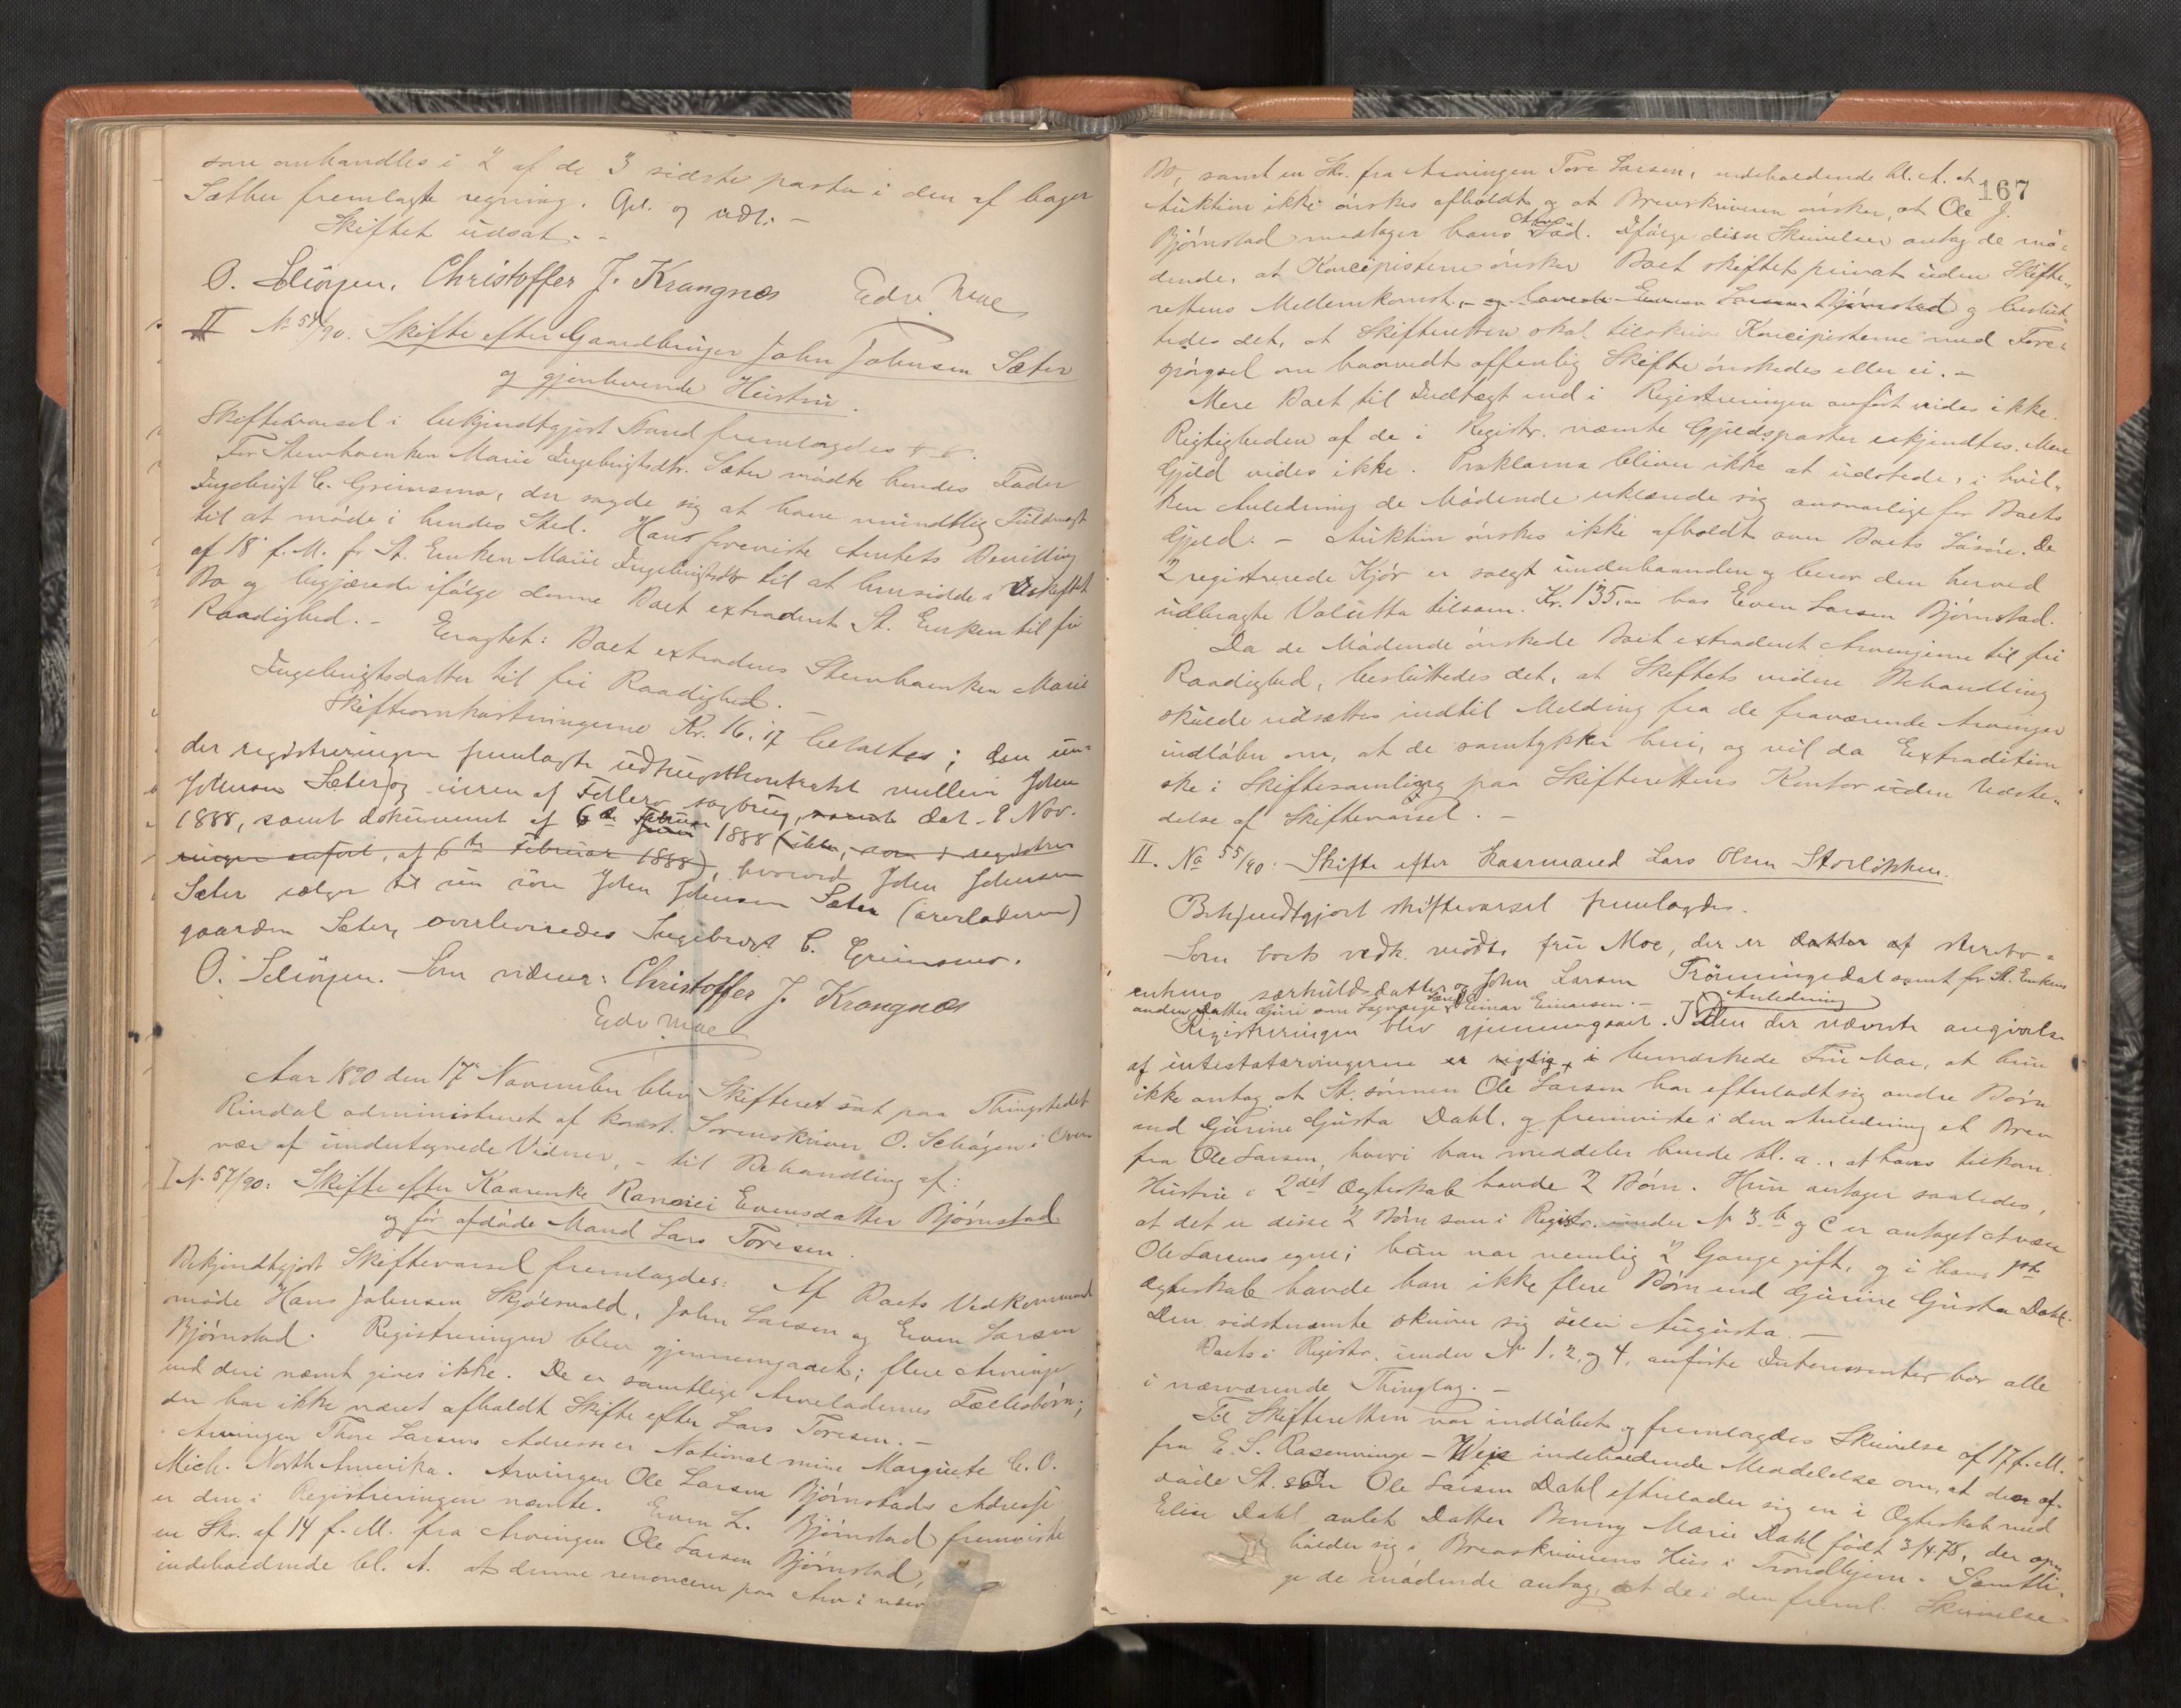 som omhandles i 2 af de 3 sidste poster i den af bager
Sæther fremlagte regning. Opl. og vedt. -
Skiftet udsat. -
O. Schögen. Christoffer J. Krangnæs Edv. Moe
II No 54/90. Skifte efter Gaardbruger John Johnsen Sæter
og gjenlevende Hustru.
Skiftevarsel i bekjendtgjort Stand fremlagdes
For Stervboenken Marie Ingebrigtsdtr. Sæter mødte hendes Fader
Ingebrigt C. Grinsmo, der sagde sig at have mundtlig Fuldmagt
til at møde i hendes Sted. Han foreviste Amtets Bevilling
af 18 f. M. for St. Enken Marie Ingebrigtsdtr til at hensidde i uskiftet
Bo og begjærede ifølge denne Boet extraderet St. Enken til fri
Raadighed. - Eragtet: Boet extraderes Stervboenken Marie
Ingebrigtsdatter til fri Raadighed. -
Skifteomkostningerne Kr. 16.17 betaltes; den un-
der registreringen fremlagte udtugtkontrakt mellem John
Johnsen Sæter og eieren af Fellers sagbrug, samt dat. 2 Nov.
1888, samt dokument af 6te Februar 1888 (ikke, som i registre-
ringen anført, af 6te Februar 1888), hvorved John Johnsen
Sæter sælger til sin søn John Johnsen Sæter (arveladeren)
gaarden Sæter, overleveredes Ingebrigt C. Grinsmo.
O. Schögen. Som vidner: Christoffer J. Krangnæs
Edv. Moe
Aar 1890 den 17de November blev Skifteret sat paa Thingstedet
Rindal administreret af konst. Sorenskriver O. Schøgen i Over-
vær af undertegnede Vidner, - til Behandling af:
I No 57/90: Skifte efter Kaarenke Rannei Evensdatter Bjørnstad
og før afdøde Mand Lars Toresen.
Bekjendtgjort Skiftevarsel fremlagdes: Af Boets Vedkommend
møde Hans Johnsen Skjølsvold, John Larsen og Even Larsen
Bjørnstad. Registreringen blev gjennemgaaet; flere Arvinger
end deri nævnt gives ikke. De er samtlige Arveladernes Fællesbørn;
der har ikke været afholdt Skifte efter Lars Toresen. -
Arvingen Thore Larsens Adresse er National mine Marquete C. O.
Mich. North Amerika. Arvingen Ole Larsen Bjørnstads Adresse
er den i Registreringen nævnte. Even L. Bjørnstad fremviste
en Skr. af 14 f. M. fra Arvingen Ole Larsen Bjørnstad,
indeholdende bl. A. at denne renoncerer paa Arv i nærv
167
Bo, samt en Skr. fra Arvingen Tore Larsen, indeholdende bl. A. at
Auktion ikke ønskes afholdt og at Brevskriveren ønsker, at Ole J.
Bjørnstad modtager hans Arvelod. Ifølge disse Skrivelser antog de mø-
dende, at Koncipisterne ønsker Boet skiftet privat uden Skifte-
rettens Mellemkomst. - og lovede Even Larsen Bjørnstad og beslut-
tedes det, at Skifteretten skal tilskrive Koncipisterne med Fore-
spørgsel om hvorvidt offentlig Skifte ønskedes eller ei. -
Mere Boet til Indtægt end i Registreringen anført vides ikke.
Rigtigheden af de i Registr. nævnte Gjeldsposter erkjendtes. Mere
Gjeld vides ikke. Proklama bliver ikke at udstede, i hvil-
ken Anledning de Mødende erklærede sig ansvarlige for Boets
Gjeld. - Auktion ønskes ikke afholdt over Boets Løsøre. De
2 registrerede Kjør er solgt underhaanden og beror den herved
udbragte Valutta tilsam. Kr. 135,00 hos Even Larsen Bjørnstad.
Da de Mødende ønskede Boet extraderet Arvingerne til fri
Raadighed, besluttedes det, at Skiftets videre Behandling
skulde udsættes indtil Melding fra de fraværende Arvinger
indløber om, at de samtykker heri, og vil da Extradition
ske i Skiftesamling paa Skifterettens Kontor uden Udste-
delse af Skiftevarsel. -
II. No 55/90. Skifte efter Kaarmand Lars Olsen Storløkken.
Bekjendtgjort skiftevarsel fremlagdes.
Som boets vedk. mødte fru Moe, der er datter af stervbo-
enkens særkuldsdatter og John Larsen Trønningsdal samt for St. Enkens
anden Datter Guri som Lagværge Sønnen Einar Einarsen. -
Registreringen blev gjennemgaaet. I Anledning den der nævnte angivelse
af intestatarvingerne er rigtig, i bemærkede Fru Moe, at hun
ikke antog at St. sønnen Ole Larsen har efterladt sig andre Børn
end Gurine Gusta Dahl, og fremviste i den Anledning et Brev
fra Ole Larsen, hvori han meddeler hende bl. a., at hans tilkom.
Hustru i 2det Ægteskab havde 2 Børn. Hun antager saaledes,
at det er disse 2 Børn som i Registr. under No 3 b og c er antaget at være
Ole Larsens egne; han var nemlig 2 Gange gift, og i hans 1ste
Ægteskab havde han ikke flere Børn end Gurine Gusta Dahl.
Den sidstnævnte skriver sig selv Augusta. -
Boets i Registr. under No 1, 2, og 4, anførte Interessenter bor alle
i nærværende Thinglag. -
Til Skifteretten var indløbet og fremlagdes Skrivelse af 17 f. M.
fra E. S. Rosenvinge - Weje indeholdende Meddelelse om, at den af-
døde St. søn Ole Larsen Dahl efterlader sig en i Ægteskab med
Elise Dahl avlet Datter Benny Marie Dahl født 3/4 78, der op-
holder sig i Brevskriverens Hus i Trondhjem. Samtli-
ge de mødende antog, at de i den freml. Skrivelse